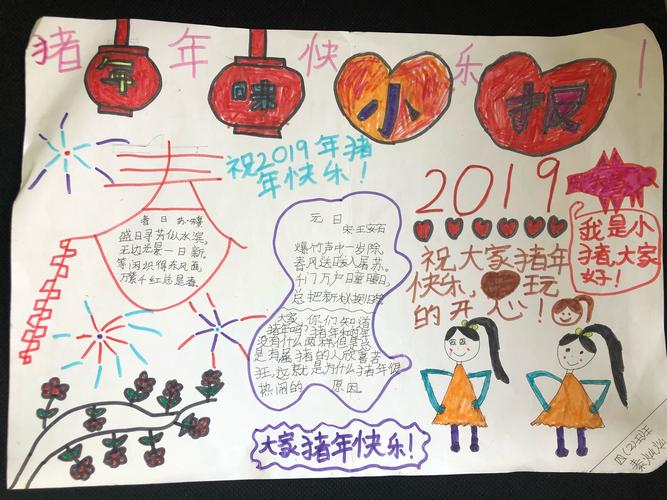 猪年快乐!
年味小报
祝2019年猪
年快乐!
春
春日 苏·朱熹
盛日寻芳似水滨,
无边光景一日新。
等闲识得东风面,
万紫千红总是春。
元日
宋·王安石
爆竹声中一岁除,
春风送暖入屠苏。
千门万户曈曈日,
总把新
大家,你们知道
猪年吗?猪年和
没有什么两样,但是总
是有属猪的人欣喜若
狂,这就是为什么猪年很
热闹的原因。
大家猪年快乐!
2019
祝大家猪年
快乐,玩
的开心!
我是小
猪,大家
好!
四(2)班